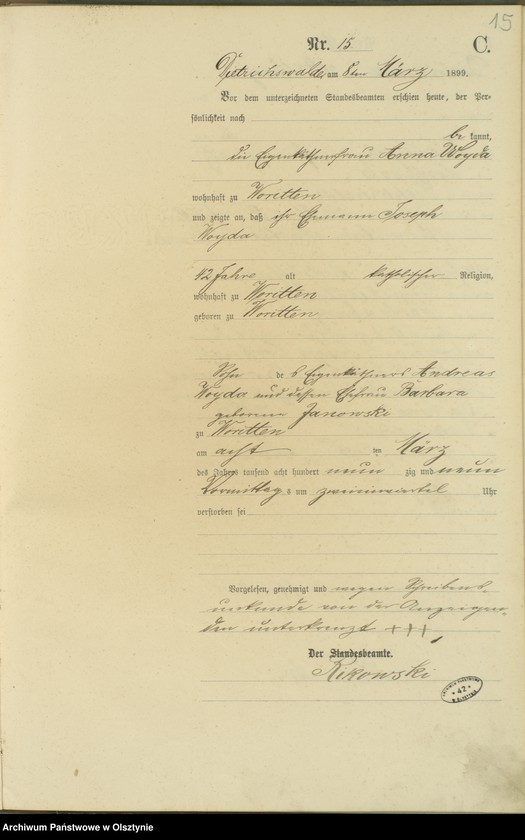 15
Nr. 15 C.
Dietrichswalde, am 8ten März 1899.
Vor dem unterzeichneten Standesbeamten erschien heute, der Per-
sönlichkeit nach
be kannt,
die Eigenkäthnerfrau Anna Woyda
wohnhaft zu Woritten
und zeigte an, daß ihr Ehemann Joseph
Woyda
42 Jahre alt katholischer Religion,
wohnhaft zu Woritten
geboren zu Woritten
Sohn des Eigenkäthners Andreas
Woyda und dessen Ehefrau Barbara
geborene Janowski
zu Woritten
am acht ten März
des Jahres tausend acht hundert neun zig und neun
Vormittags um Uhr
verstorben sei
Vorgelesen, genehmigt und wegen Schreibens-
unkunde von der Anzeigen-
den unterkreuzt +++
Der Standesbeamte.
Rikowski
42
Archiwum Państwowe w Olsztynie